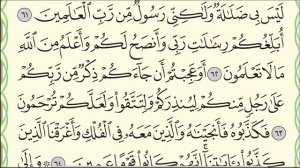 لَيْسَ بِي ضَلَٰلَةٌ وَلَٰكِنِّي رَسُولٌ مِّن رَّبِّ ٱلْعَٰلَمِينَ ٦١
أُبَلِّغُكُمْ رِسَٰلَٰتِ رَبِّي وَأَنصَحُ لَكُمْ وَأَعْلَمُ مِنَ ٱللَّهِ
مَا لَا تَعْلَمُونَ ٦٢ أَوَعَجِبْتُمْ أَن جَآءَكُمْ ذِكْرٌ مِّن رَّبِّكُمْ
عَلَىٰ رَجُلٍ مِّنكُمْ لِيُنذِرَكُمْ وَلِتَتَّقُوا۟ وَلَعَلَّكُمْ تُرْحَمُونَ ٦٣
فَكَذَّبُوهُ فَأَنجَيْنَٰهُ وَٱلَّذِينَ مَعَهُۥ فِي ٱلْفُلْكِ وَأَغْرَقْنَا ٱلَّذِينَ
كَانُوا۟ قَوْمًا عَمِينَ ٦٤